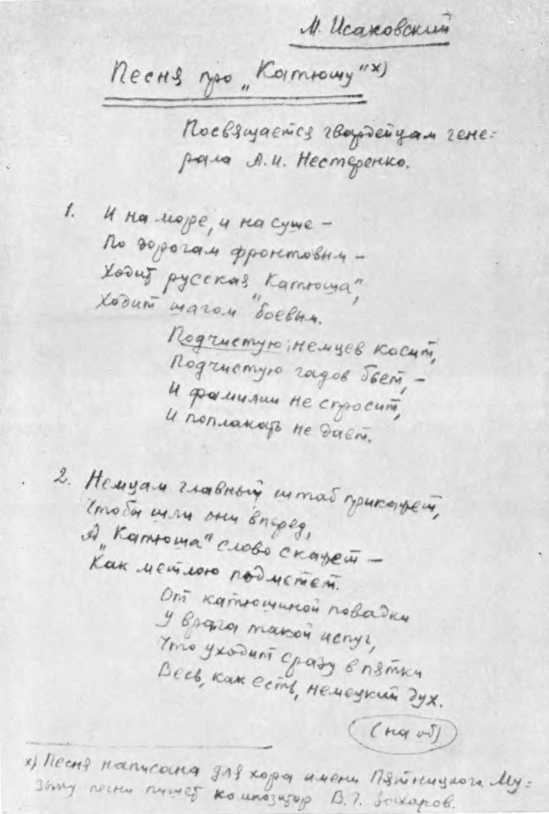 М. Исаковский
Песня про „Катюшу"х)
Посвящается гвардейцам гене=
рала А.И. Нестеренко.
1. И на море, и на суше –
По дорогам фронтовым –
Ходит русская „Катюша",
Ходит шагом боевым.
Подчистую немцев косит,
Подчистую гадов бьет, –
И фамилии не спросит,
И поплакать не дает.
2. Немцам главный штаб прикажет,
Чтобы шли они вперед,
А „Катюша" слово скажет –
Как метлою подметет.
От катюшиной повадки
У врага такой испуг,
Что уходит сразу в пятки
Весь, как есть, немецкий дух.
(на об)
х) Песня написана для хора имени Пятницкого. Му=
зыку песни пишет композитор В.Г. Захаров.